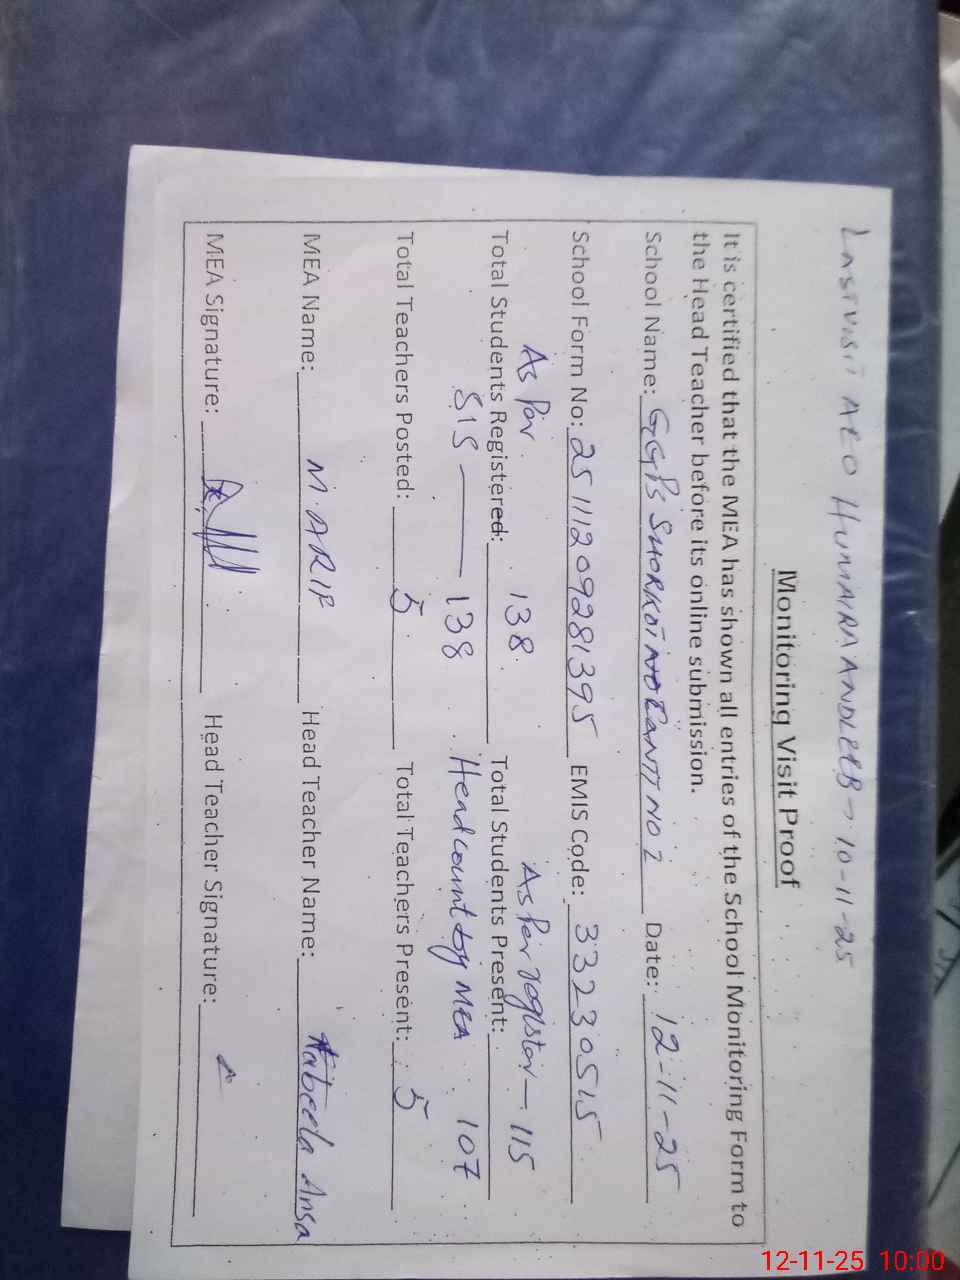 LASTVISIT AEO HUMAIRA ANDLEEB → 10-11-25
Monitoring Visit Proof
It is certified that the MEA has shown all entries of the School Monitoring Form to
the Head Teacher before its online submission.
School Name: GGPS SHORKOT CANTT NO 2 Date: 12-11-25
School Form No: 25111209281395 EMIS Code: 33230515
As Per 138 As Per register — 115
Total Students Registered: Total Students Present:
SIS — 138 Headcount by MEA 107
Total Teachers Posted: 5 Total Teachers Present: 5
MEA Name: M. ARIF Head Teacher Name: Nabeela Ansa
MEA Signature: Head Teacher Signature:
12-11-25 10:00